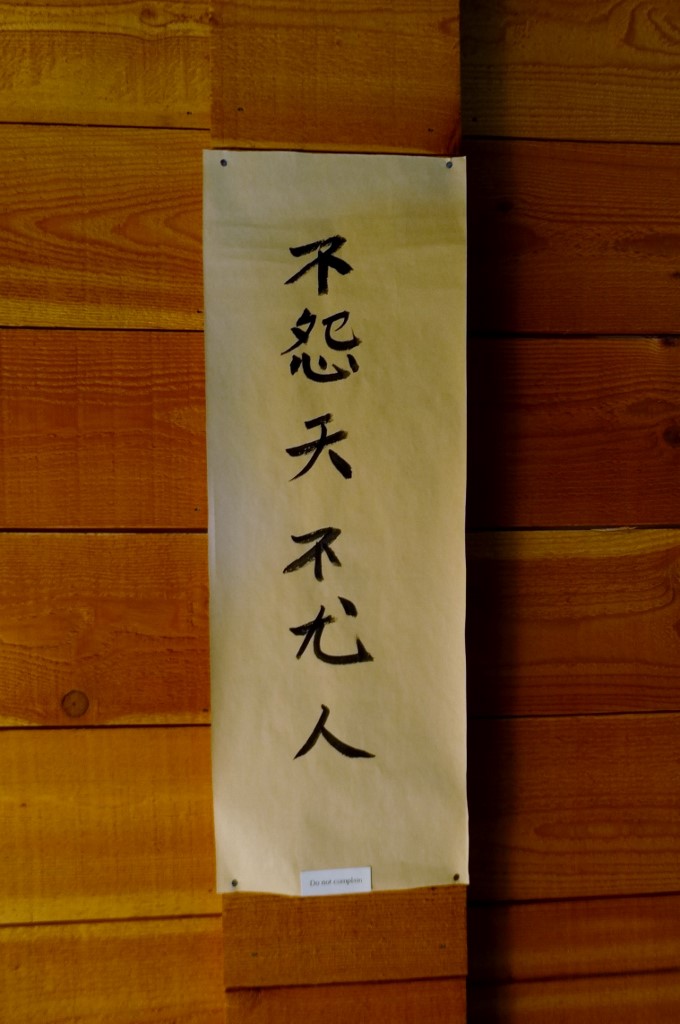 不怨天不尤人
Do not complain